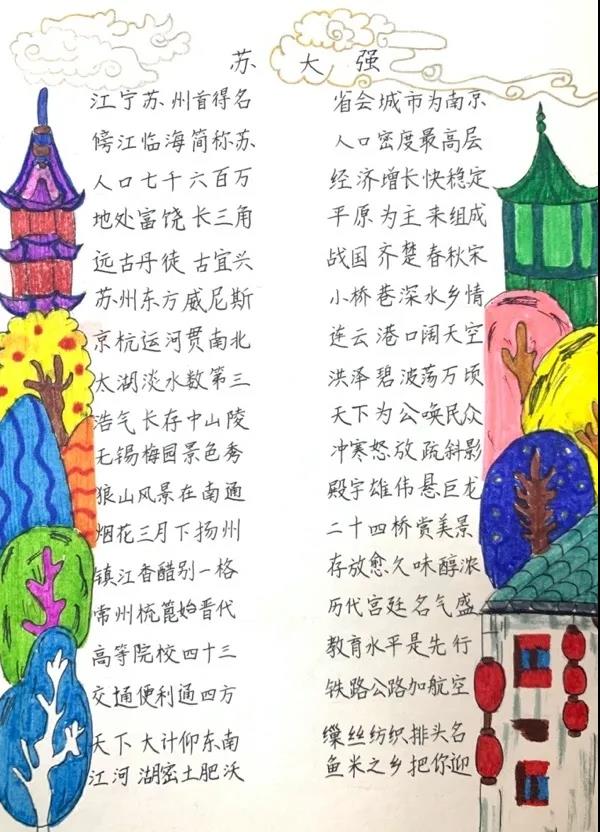 苏大强
江宁苏州首得名 省会城市为南京
傍江临海简称苏 人口密度最高层
人口七千六百万 经济增长快稳定
地处富饶长三角 平原为主来组成
远古丹徒古宜兴 战国齐楚春秋宋
苏州东方威尼斯 小桥巷深水乡情
京杭运河贯南北 连云港口阔天空
太湖淡水数第三 洪泽碧波荡万顷
浩气长存中山陵 天下为公唤民众
无锡梅园景色秀 冲寒怒放疏斜影
狼山风景在南通 殿宇雄伟悬巨龙
烟花三月下扬州 二十四桥赏美景
镇江香醋别一格 存放愈久味醇浓
常州梳篦始晋代 历代宫廷名气盛
高等院校四十三 教育水平是先行
交通便利通四方 铁路公路加航空
天下大计仰东南 缫丝纺织排头名
江河湖密土肥沃 鱼米之乡把你迎